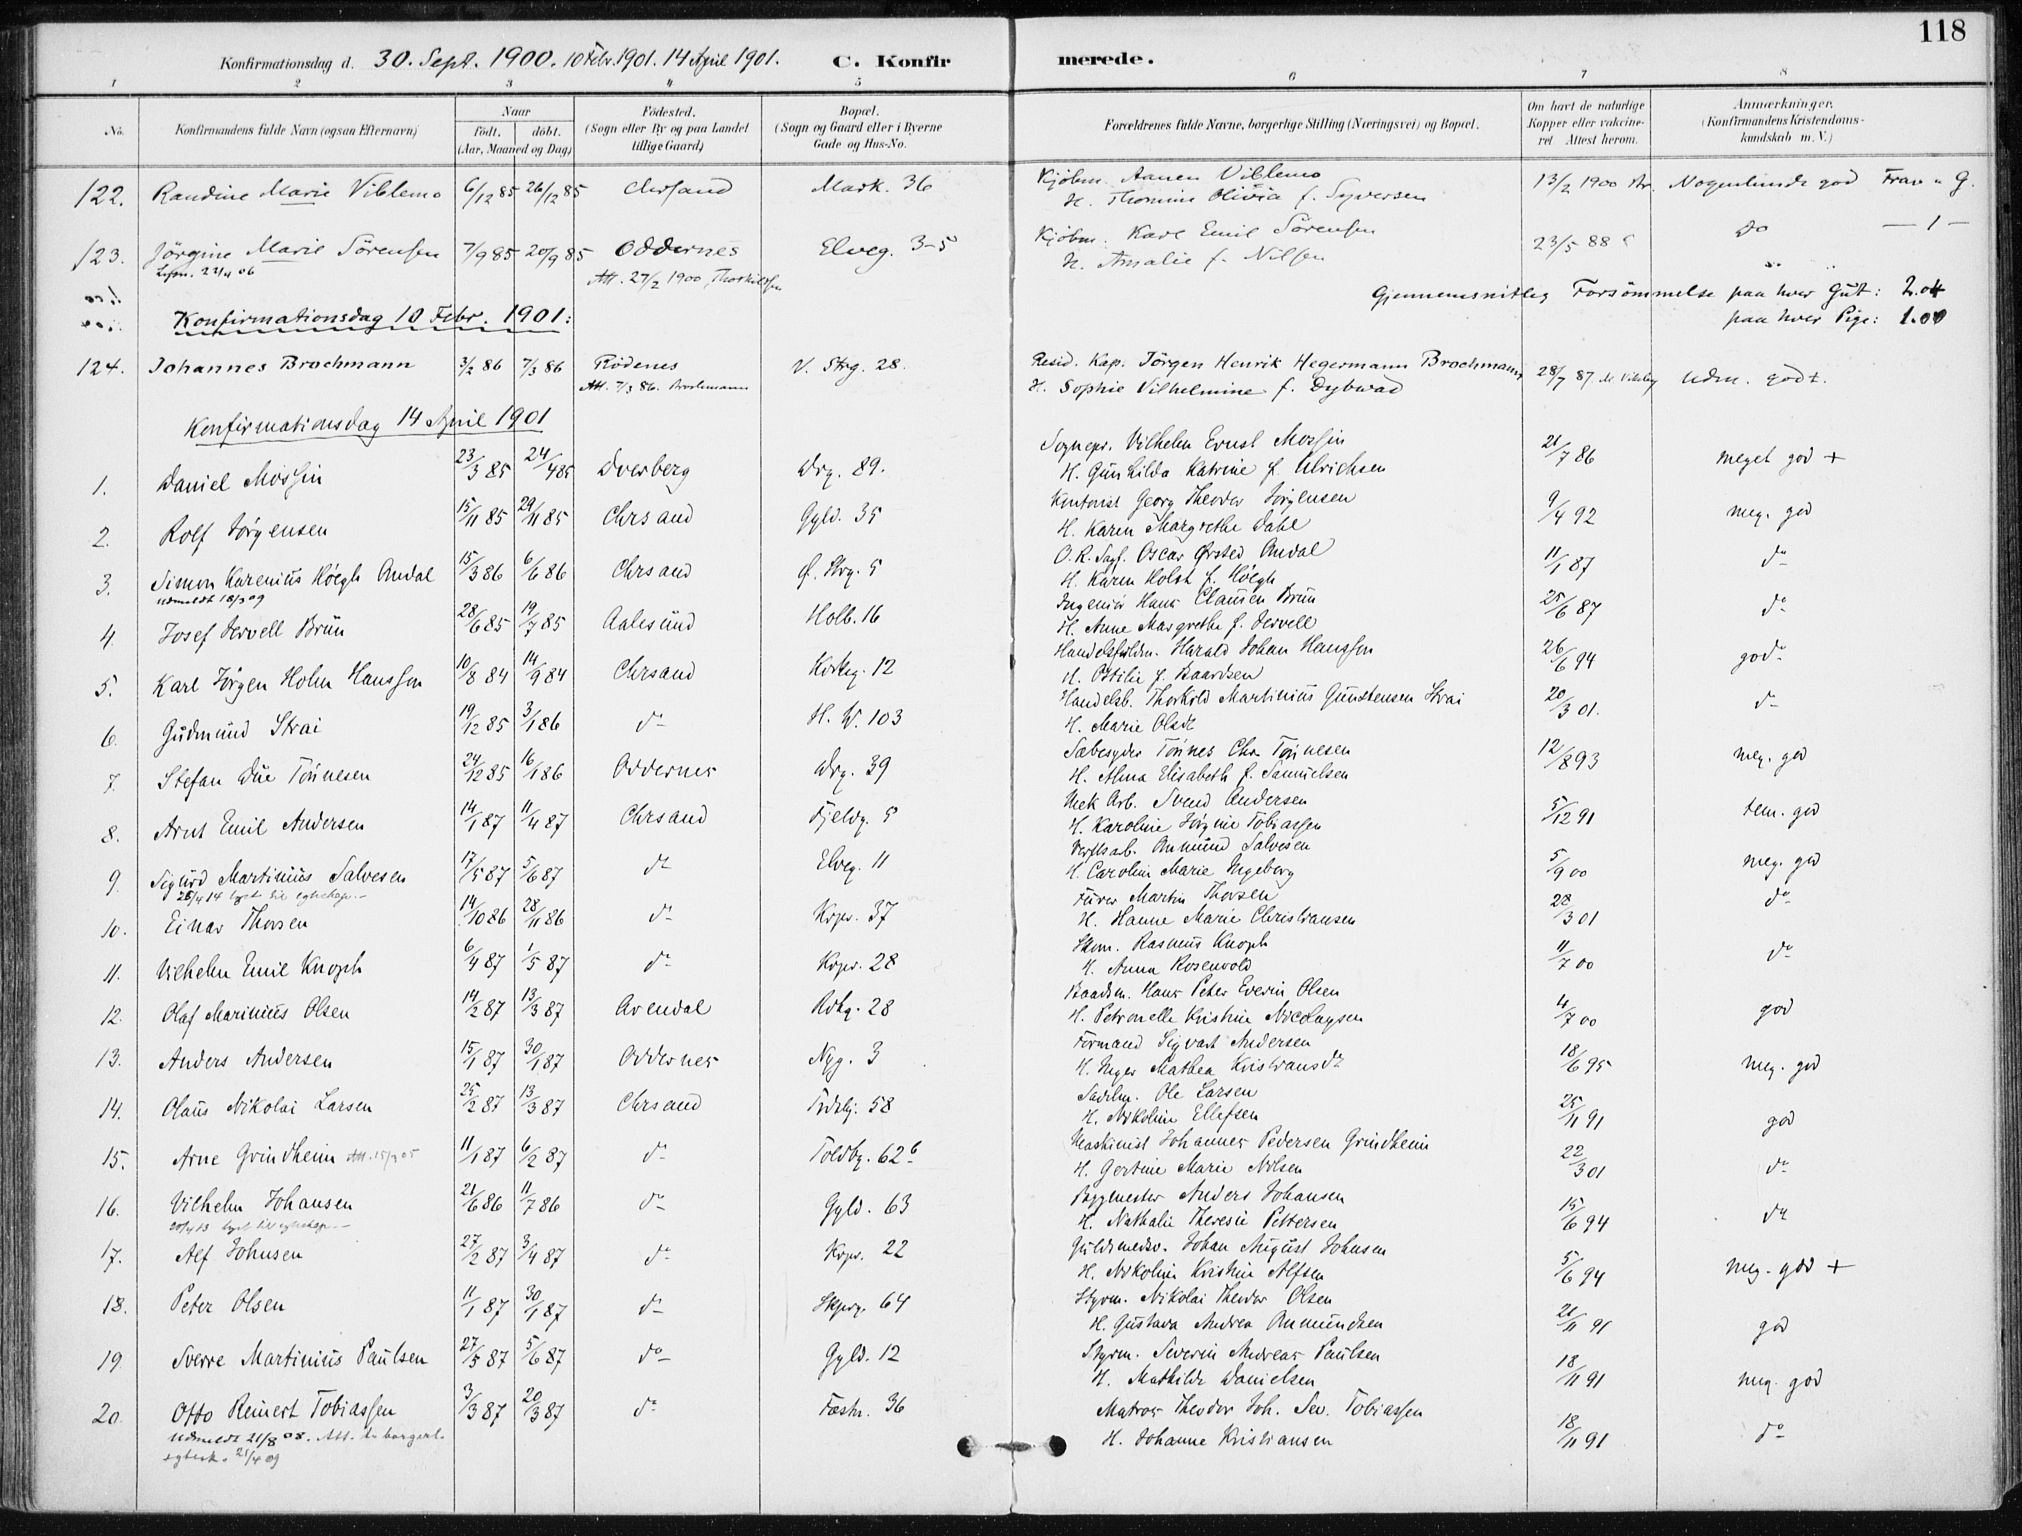 118
Konfirmationsdag d. 30. Sept. 1900. 10 Febr. 1901. 14 April 1901. C. Konfirmerede.
1 2 3 4 5 6 7 8
No. Konfirmandens fulde Navn (ogsaa Efternavn) Naar født. døbt. (Aar, Maaned og Dag) Fødested. (Sogn eller By og paa Landet tillige Gaard) Bopæl. (Sogn og Gaard eller i Byerne Gade og Hus-No. Forældrenes fulde Navne, borgerlige Stilling (Næringsvei) og Bopæl. Om havt de naturlige Kopper eller vakcineret Attest herom. Anmærkninger. (Konfirmandens Kristendomskundskab m. V.)
122. Randine Marie Viblemo 6/12 85 26/12 85 Chrsand Mark. 36 Kjøbm. Aanen Viblemo 13/2 1900 Nogenlunde god Frav " G.
H. Thomine Olivia f. Syversen
123. Jörgine Marie Sörensen 7/9 85 20/9 85 Oddernes Elveg. 35 Kjøbm. Karl Emil Sörensen 23/5 88 Do — 1 —
22/4 06 Att. 27/2 1900, Thorkildsen H. Amalie f. Nilsen
Gjennemsnitlig Forsömmelse paa hver Gut: 2.04
Konfirmationsdag 10 Febr. 1901: paa hver Pige: 1.00
124. Johannes Brochmann 3/2 86 7/3 86 Rödenes V. Strg. 28. Resid. Kap. Jörgen Henrik Hegermann Brochmann 28/7 87 udm. godt.
Att. 7/3 86. Brochmann H. Sophie Vilhelmine f. Dybwad
Konfirmationsdag 14 April 1901
1. Daniel Mossin 23/3 85 24/4 85 Dverberg Drg. 89. Sognepr. Vilhelm Ernst Mossin 21/7 86 meget god +
H. Gunhilda Katrine f. Ulrichsen
2. Rolf Jörgensen 15/11 85 29/11 85 Chrsand Gyld. 35 Kontorist Georg Theodor Jörgensen 9/4 92 meg. god
H. Karen Margrethe Dahl
3. Simon Karenius Höegh Andal 15/3 86 6/6 86 Chrsand Ø. Strg. 5 O.R. Sagf. Oscar Ørsted Andal 11/1 87 do
udmeldt 18/3 09 H. Karen Holst f. Höegh
4. Josef Jervell Brun 28/6 85 19/7 85 Aalesund Holb. 16 Ingeniör Hans Clausen Brun 25/6 87 do
H. Anne Margrethe f. Jervell
5. Karl Jörgen Holm Hanssen 10/8 84 14/9 84 Chrsand Kirkeg. 12 Handelsfuldm. Harald Johan Hanssen 26/6 94 god
H. Ottilie f. Baardsen
6. Gudmund Strai 19/12 85 3/1 86 do H. W. 103 Handelsb. Thorkild Martinius Gundtensen Strai 20/3 01. do
H. Marie Olsdt
7. Stefan Due Tönnesen 24/12 85 16/1 86 Oddernes Drg. 39 Sæbesyder Tönnes Chr. Tönnesen 12/8 93 meg. god
H. Alma Elisabeth f. Samuelsen
8. Arnt Emil Andersen 14/1 87 11/4 87 Chrsand Fjeldg. 5 Mek Arb. Svend Andersen 5/12 91 tem. god
H. Karoline Jörgine Tobiassen
9. Sigurd Martinius Salvesen 17/5 87 5/6 87 do Elveg. 11 Verftsarb. Anmund Salvesen 5/9 00 meg. god
25/4 14 lyst til egteskap.— H. Caroline Marie Ingeborg
10. Einar Thorsen 14/10 86 28/11 86 do Krpr. 37 Furer Martin Thorsen 28/3 01 do
H. Hanne Marie Christiansen
11. Vilhelm Emil Knoph 6/4 87 1/5 87 do Krpr. 28 Skom. Rasmus Knoph 11/7 00 do
H. Anna Rosenvold
12. Olaf Marinius Olsen 14/2 87 13/3 87 Arendal Rdhg. 28 Baadsm. Hans Peter Everin Olsen 4/7 00 god
H. Petronelle Kristine Nicolaysen
13. Anders Andersen 15/1 87 30/1 87 Oddernes Nyg. 3 Formand Sigvart Andersen 18/6 95 meg. god
H. Inger Mathea Kristiansdt
14. Olaus Nikolai Larsen 25/2 87 13/3 87 Chrsand 58 Ole Larsen 25/11 91 god
H. Nikoline Ellefsen
15. Arne Grindheim Att. 15/3 05 11/1 87 6/2 87 do Toldbg. 62b Maskinist Johannes Pedersen Grindheim 22/3 01 do
H. Gertine Marie Nilsen
16. Vilhelm Johansen 21/6 86 11/7 86 do Gyld. 63 Byggmester Anders Johansen 15/6 94 do
20/4 13 lyst til egteskap.— H. Nathalie Theresie Pettersen
17. Alf Johnsen 27/2 87 3/4 87 do Krpr. 22 Guldsmedsv. Johan August Johnsen 5/6 94 meg. god +
H. Nikoline Kristine Alfsen
18. Peter Olsen 11/1 87 30/1 87 do Skprg. 64 Styrm. Nikolai Theodor Olsen 21/11 91 god
H. Gustava Andrea Anmundsen
19. Sverre Martinius Paulsen 27/5 87 5/6 87 do Gyld. 12 Styrm. Severin Andreas Paulsen 18/11 91 meg. god
H. Mathilde Danielsen
20. Otto Reinert Tobiassen 3/3 87 20/3 87 do Fæstn. 36 Matros Theodor Joh. Sev. Tobiassen 18/11 91 do
Udmeldt 21/8 08. Att. t. borgerl. H. Johanne Kristiansen
egtesk. 21/4 09